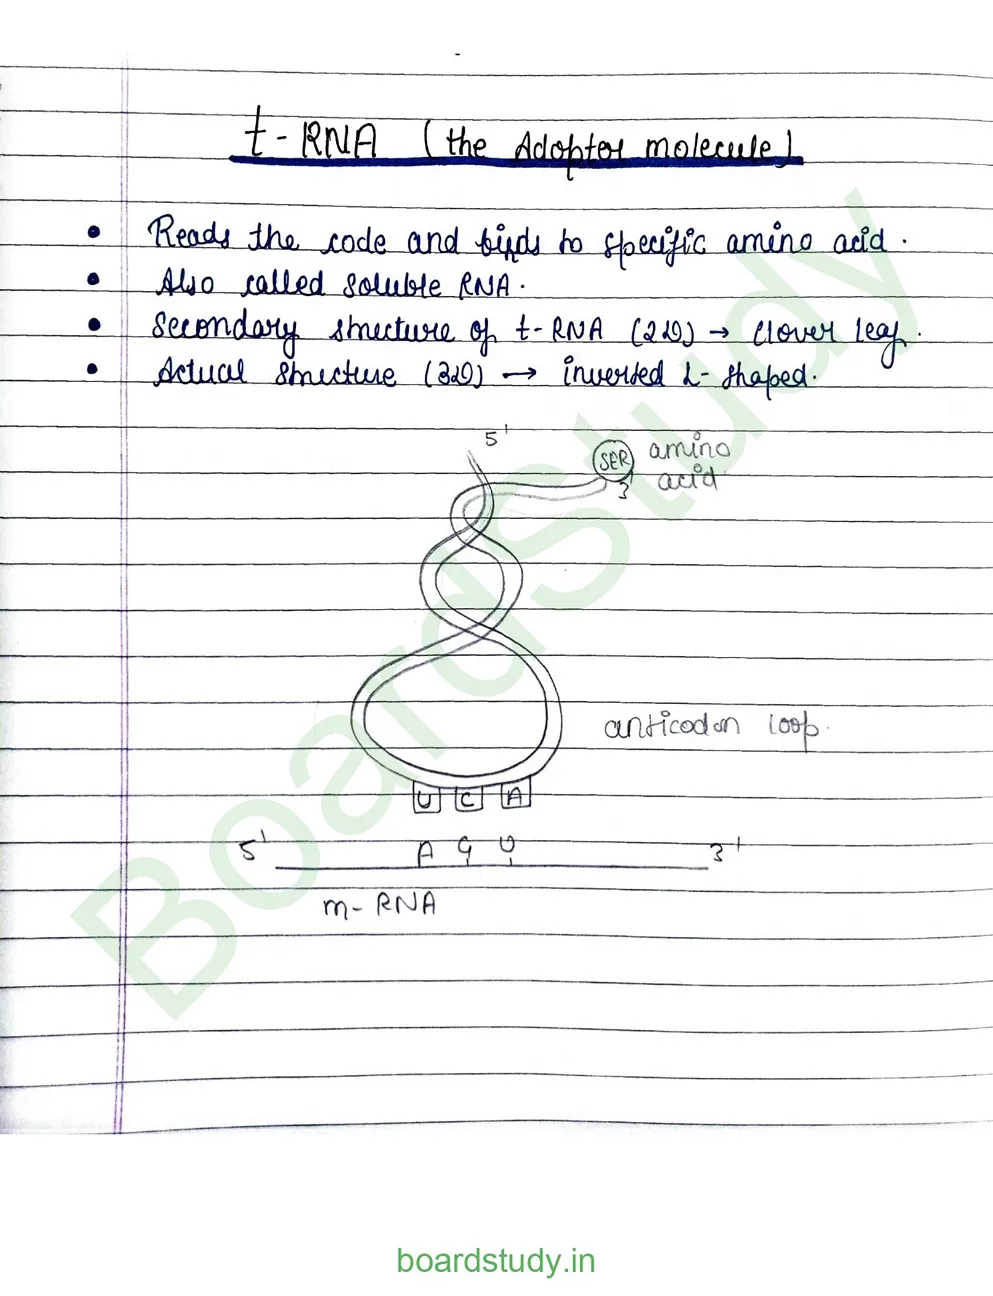 t-RNA (the Adoptor molecule)
• Reads the code and binds to specific amino acid.
• Also called soluble RNA.
• Secondary structure of t-RNA (2D) → Clover leaf.
• Actual structure (3D) → inverted L-shaped.
5'
SER amino
3' acid
anticodon loop.
U C A
5' A G U 3'
m-RNA
BoardStudy
boardstudy.in